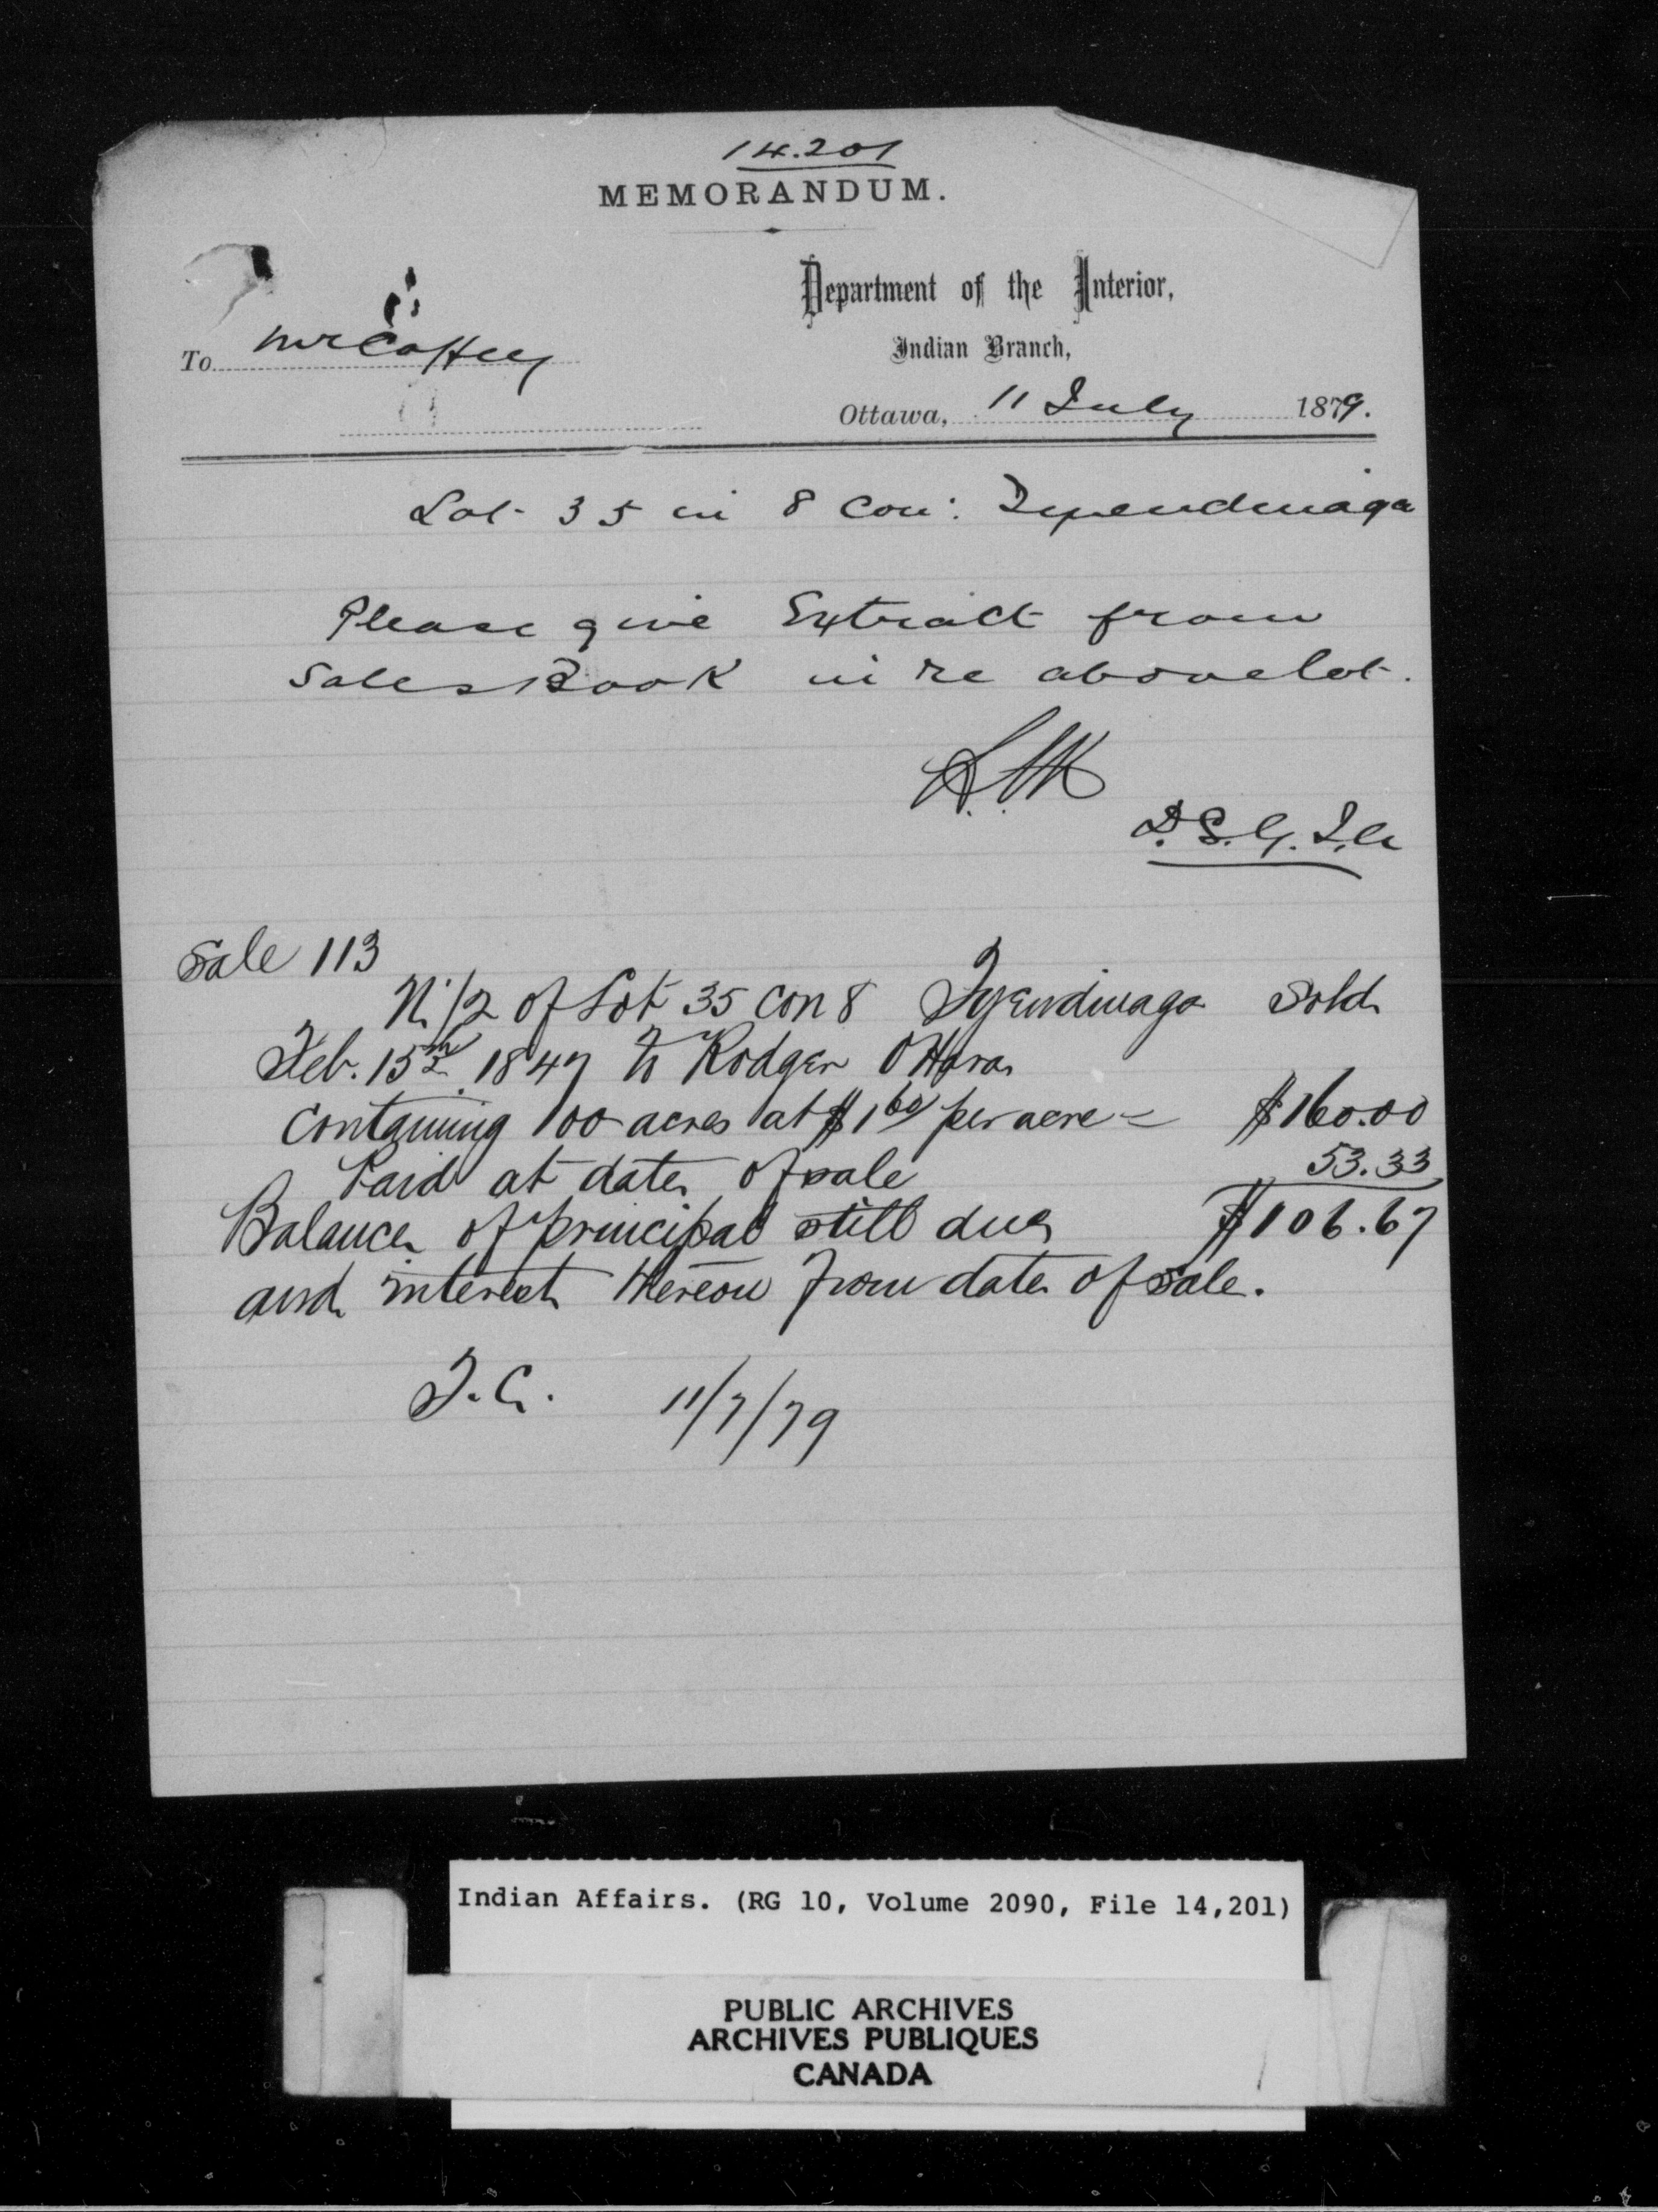 14.201
MEMORANDUM.
Department of the Interior,
Indian Branch,
To Mr Coffey
Ottawa, 11 July 1879.
Lot 35 in 8 Con: Tyendinaga
Please give Extract from
Sales Book in re above lot.
D.S.G.I.A
Sale 113
N. 1/2 of Lot 35 Con 8 Tyendinaga Sold
Feb. 15th 1847 to Rodger O'Hara
Containing 100 acres at $1 60/ per acre = $160.00
Paid at date of sale 53.33
Balance of principal still due $106.67
and interest thereon from date of sale.
T.C. 11/7/79
Indian Affairs. (RG 10, Volume 2090, File 14,201)
PUBLIC ARCHIVES
ARCHIVES PUBLIQUES
CANADA